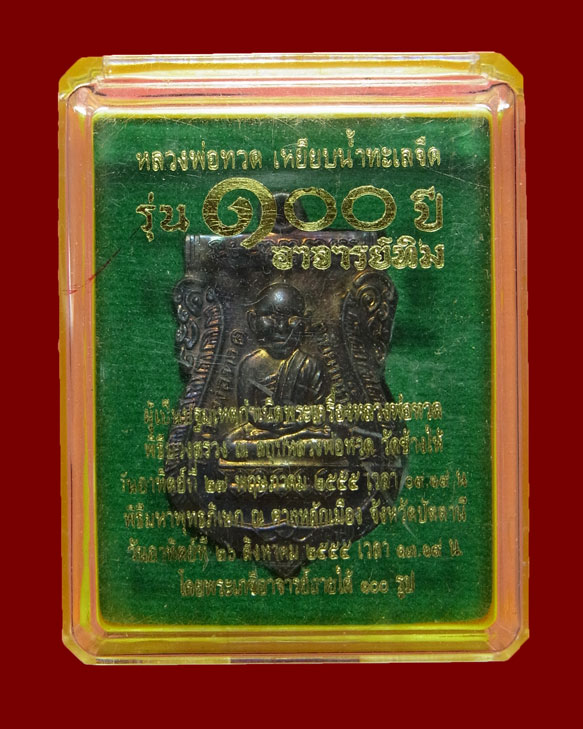 หลวงพ่อทวด เหยียบน้ำทะเลจืด
รุ่น ๑๐๐ ปี
อาจารย์ทิม
ผู้เป็นปฐมโพธิกำเนิดพระเครื่องหลวงพ่อทวด
พิธีบวงสรวง ณ สถูปหลวงพ่อทวด วัดช้างให้
วันอาทิตย์ที่ ๒๗ พฤษภาคม ๒๕๕๕ เวลา ๐๙.๑๙ น
พิธีมหาพุทธาภิเษก ณ ศาลหลักเมือง จังหวัดปัตตานี
วันอาทิตย์ที่ ๒๖ สิงหาคม ๒๕๕๕ เวลา ๑๓.๑๙ น.
โดยพระเกจิอาจารย์ภายใต้ ๑๐๘ รูป